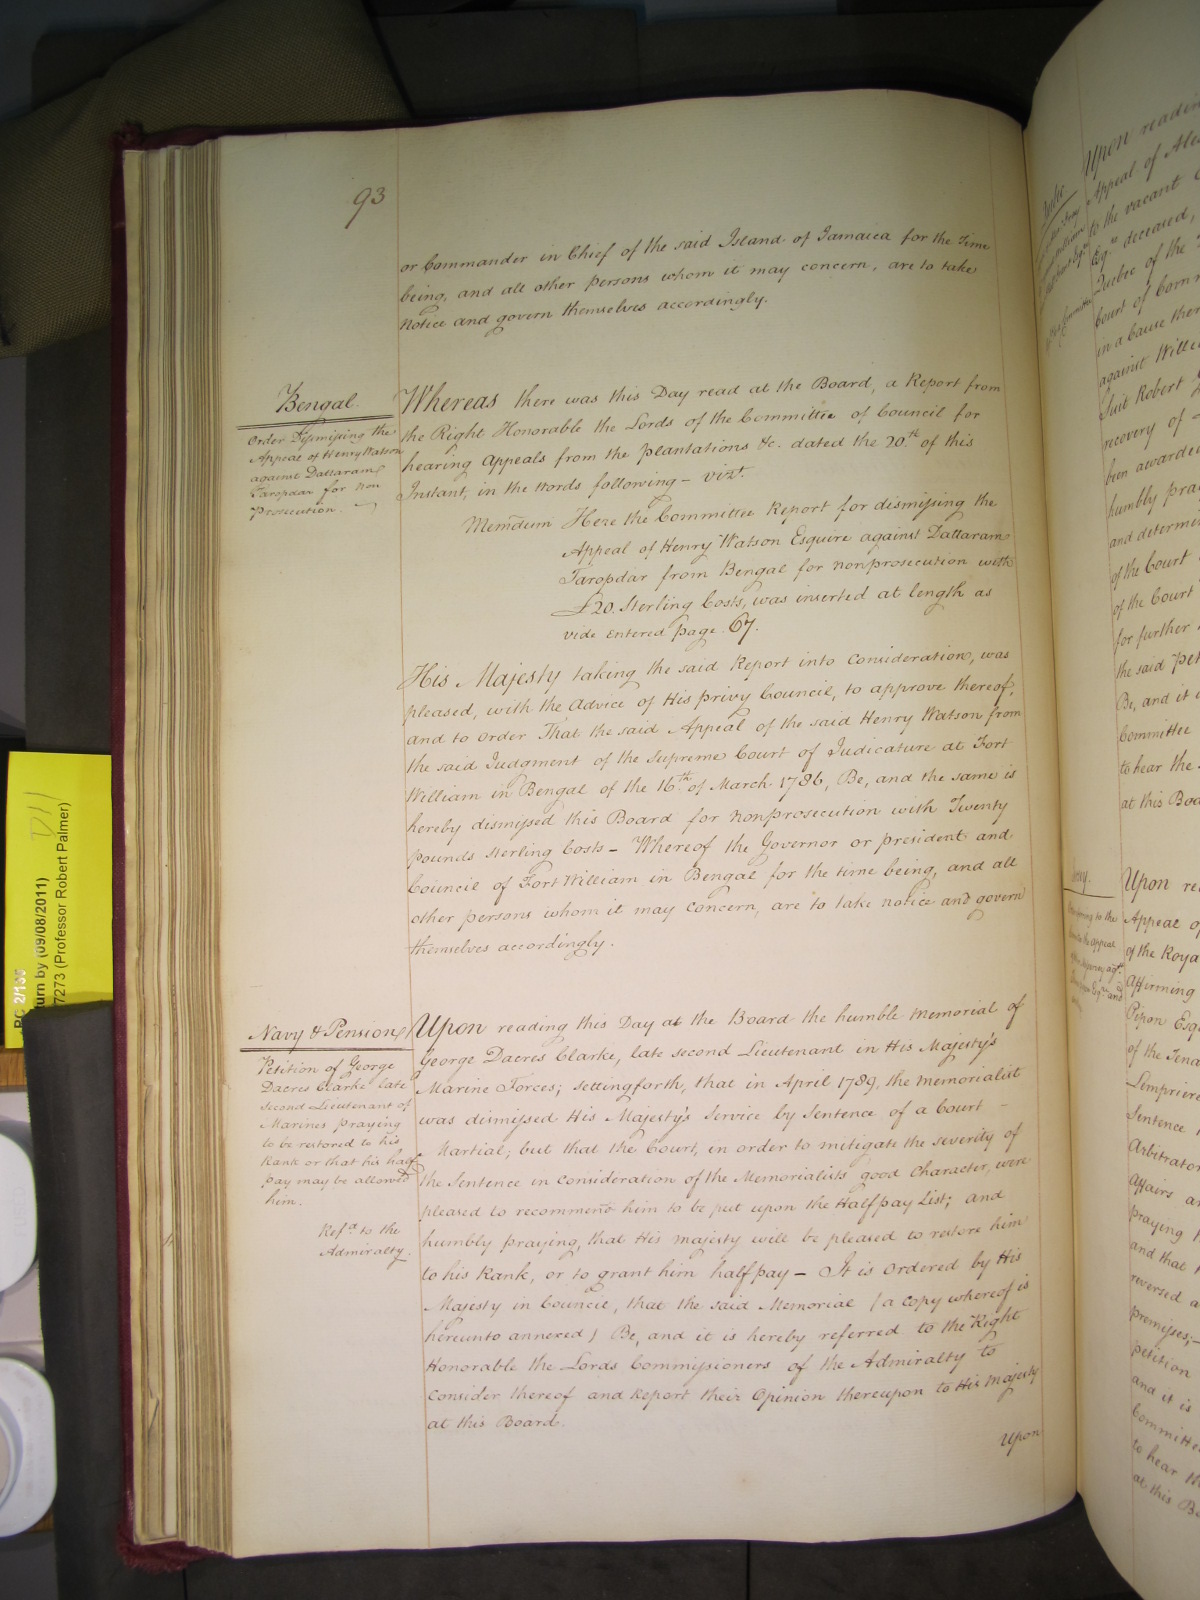 93
or Commander in Chief of the said Island of Jamaica for the Time
being, and all other persons whom it may concern, are to take
Notice and govern themselves accordingly.
Bengal.
Order Dismissing the
Appeal of Henry Watson
against Dattaram
Taropdar for non
Prosecution.
Whereas there was this Day read at the Board, a Report from
the Right Honorable the Lords of the Committee of Council for
hearing Appeals from the Plantations &c. dated the 20.th of this
Instant, in the Words following – vizt.
Memdum Here the Committee Report for dismissing the
Appeal of Henry Watson Esquire against Dattaram
Taropdar from Bengal for nonprosecution with
£20. Sterling Costs, was inserted at length as
vide entered page 67.
His Majesty taking the said Report into Consideration, was
pleased, with the Advice of His Privy Council, to approve thereof,
and to Order That the said Appeal of the said Henry Watson from
the said Judgment of the Supreme Court of Judicature at Fort
William in Bengal of the 16.th of March 1786, Be, and the same is
hereby dismissed this Board for nonprosecution with Twenty
pounds Sterling Costs – Whereof the Governor or president and
Council of Fort William in Bengal for the time being, and all
other persons whom it may Concern, are to take notice and govern
themselves accordingly.
Navy & Pensions
Petition of George
Dacres Clarke late
Second Lieutenant of
Marines praying
to be restored to his
Rank or that his half
pay may be allowed
him.
Ref.d to the
Admiralty.
Upon reading this Day at the Board the humble Memorial of
George Dacres Clarke, late second Lieutenant in His Majesty's
Marine Forces; setting forth, that in April 1789, the Memorialist
was dismissed His Majesty's Service by Sentence of a Court –
Martial; but that the Court, in order to mitigate the severity of
the Sentence in Consideration of the Memorialists good Character, were
pleased to recommend him to be put upon the Half pay List; and
humbly praying, that His Majesty will be pleased to restore him
to his Rank, or to grant him half pay – It is Ordered by His
Majesty in Council, that the said Memorial (a Copy whereof is
hereunto annexed) Be, and it is hereby referred to the Right
Honorable the Lords Commissioners of the Admiralty to
Consider thereof and Report their Opinion thereupon to His Majesty
at this Board.
Upon
Upon readin
Appeal of Ale
to the vacant
Esq.re deceased,
Quebec of the
Court of Comm
in a Cause ther
against Willia
Suit Robert
recovery of
been awarded
humbly pra
and determi
of the Court
of the Court
for further
the said Pet
Be, and it i
Committee
to hear the
at this Boa
Upon re
Appeal of
of the Roya
Affirming
Pipon Esq
of the Tena
Lempriere
Sentence
Arbitrator
Affairs an
praying
and that
reversed a
premises;
petition
and it is
Committe
to hear th
at this Bo
PC 2/135
turn by (09/08/2011)
7273 (Professor Robert Palmer)
D11